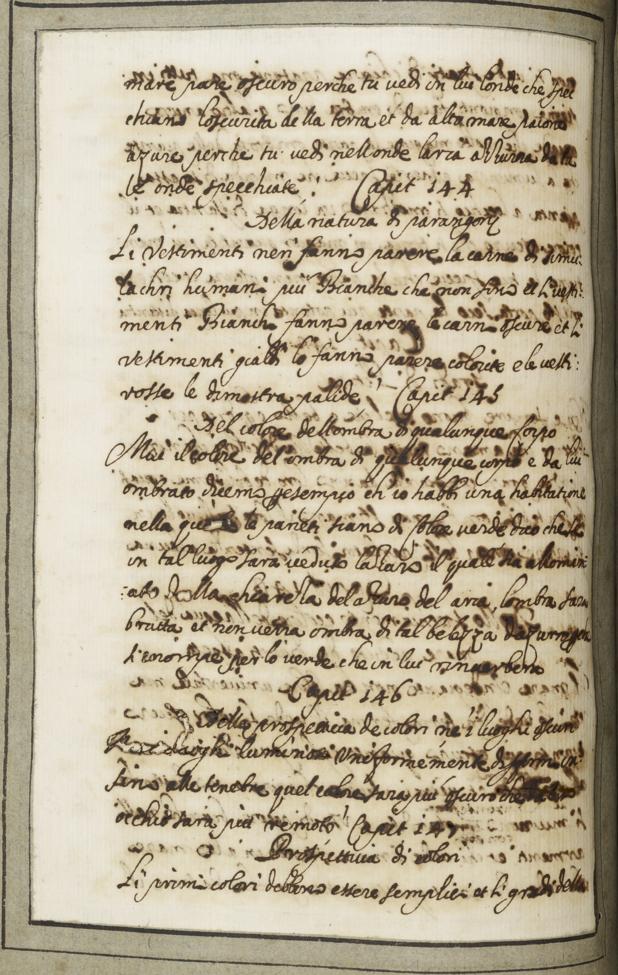 mare pare oscuro perche tu vedi in lui l'onde che spec
chiano l'oscurita della terra et da alta mare paiono
azure perche tu vedi nell onde l'aria azzurra da ta
le onde specchiate. Capit 144
Della natura di paragoni
Li Vestimenti neri fanno parere la carne di simu
lachri humani più Bianche che non sono et li vesti:
menti Bianchi fanno parere le carni oscure et li
vestimenti gialli lo fanno parere colorite e le vesti:
rosse le dimostra palide Capit 145
Del colore dell'ombra di qualunque Corpo
Mai il colore del ombra di qualunque corpo e da lui
ombrato dicemo ch io habbi una habitatione
nella le parieti siano di verde dico che
in tal luogo sara veduto il quale sia alomin:
:ato della chiarezza del azuro del aria, l'ombra sara
brutta et non verra ombra di tal belezza
per lo verde che in lui
Capit 146
Della prospetiva de colori ne i luoghi oscuri
luoghi luminosi Uniformemente
sino alle tenebre quel colore sara più oscuro che
occhio sara più remoto Capit 147
Prospettiva di colori
Li primi colori debbono essere semplici et li gradi della